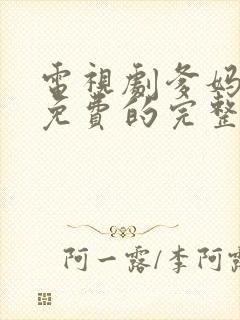 電視劇爹媽
免費的完整
阿一露/李阿露